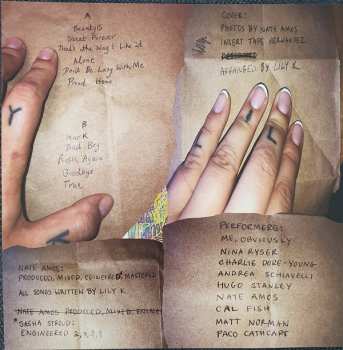 A
Beauty 15
Sweet Forever
That's the Way I Like it
Alone
Don't Be Lazy With Me
Proud Home
B
Mark
Bad Boy
Rosie Again
Goodbye
True
COVER:
PHOTOS BY NATE AMOS
INSERT TAPE HERNANDEZ
DESIGNED
ARRANGED BY LILY K
Y
K
I
L
NATE AMOS:
PRODUCED, MIXED, ENGINEERED, MASTERED
ALL SONGS WRITTEN BY LILY K
NATE AMOS PRODUCED, MIXED, ENGINE
* SASHA STROUD:
ENGINEERED 2,
PERFORMERS:
ME, OBVIOUSLY
NINA RYSER
CHARLIE DORE-YOUNG
ANDREA SCHIAVELLI
HUGO STANLEY
NATE AMOS
CAL FISH
MATT NORMAN
PACO CATHCART